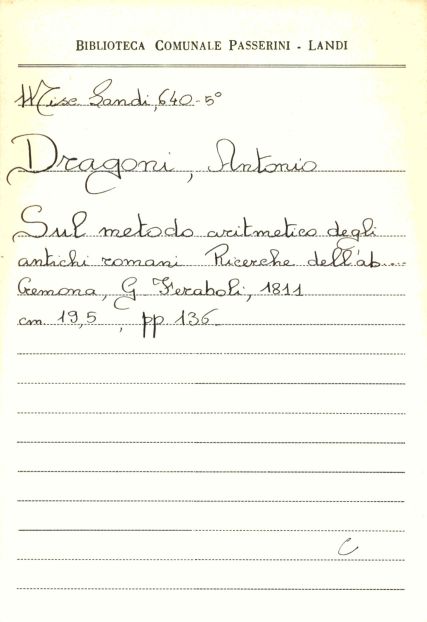 BIBLIOTECA COMUNALE PASSERINI - LANDI
Misc Landi, 640-5°
Dragoni, Antonio
Sul metodo aritmetico degli
antichi romani Ricerche dell'ab....
Cremona, G Feraboli, 1811
cm 19,5 , pp 136
C